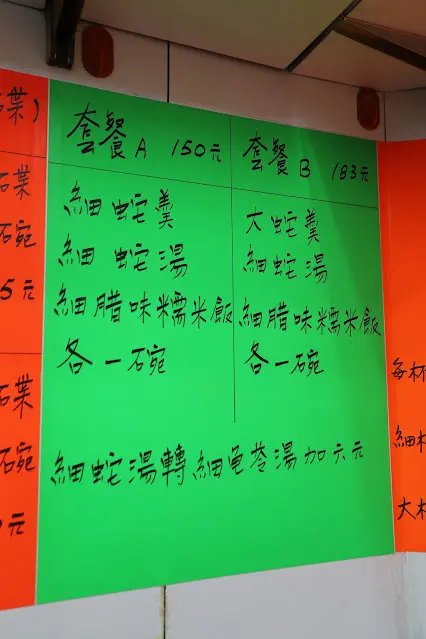 套餐A 150元
細蛇羹
細蛇湯
細腊味糯米飯
各一碗
套餐B 183元
大蛇羹
細蛇湯
細腊味糯米飯
各一碗
細蛇湯轉細龟苓湯加六元
碗
5元
碗
元
每杯
細杯
大杯